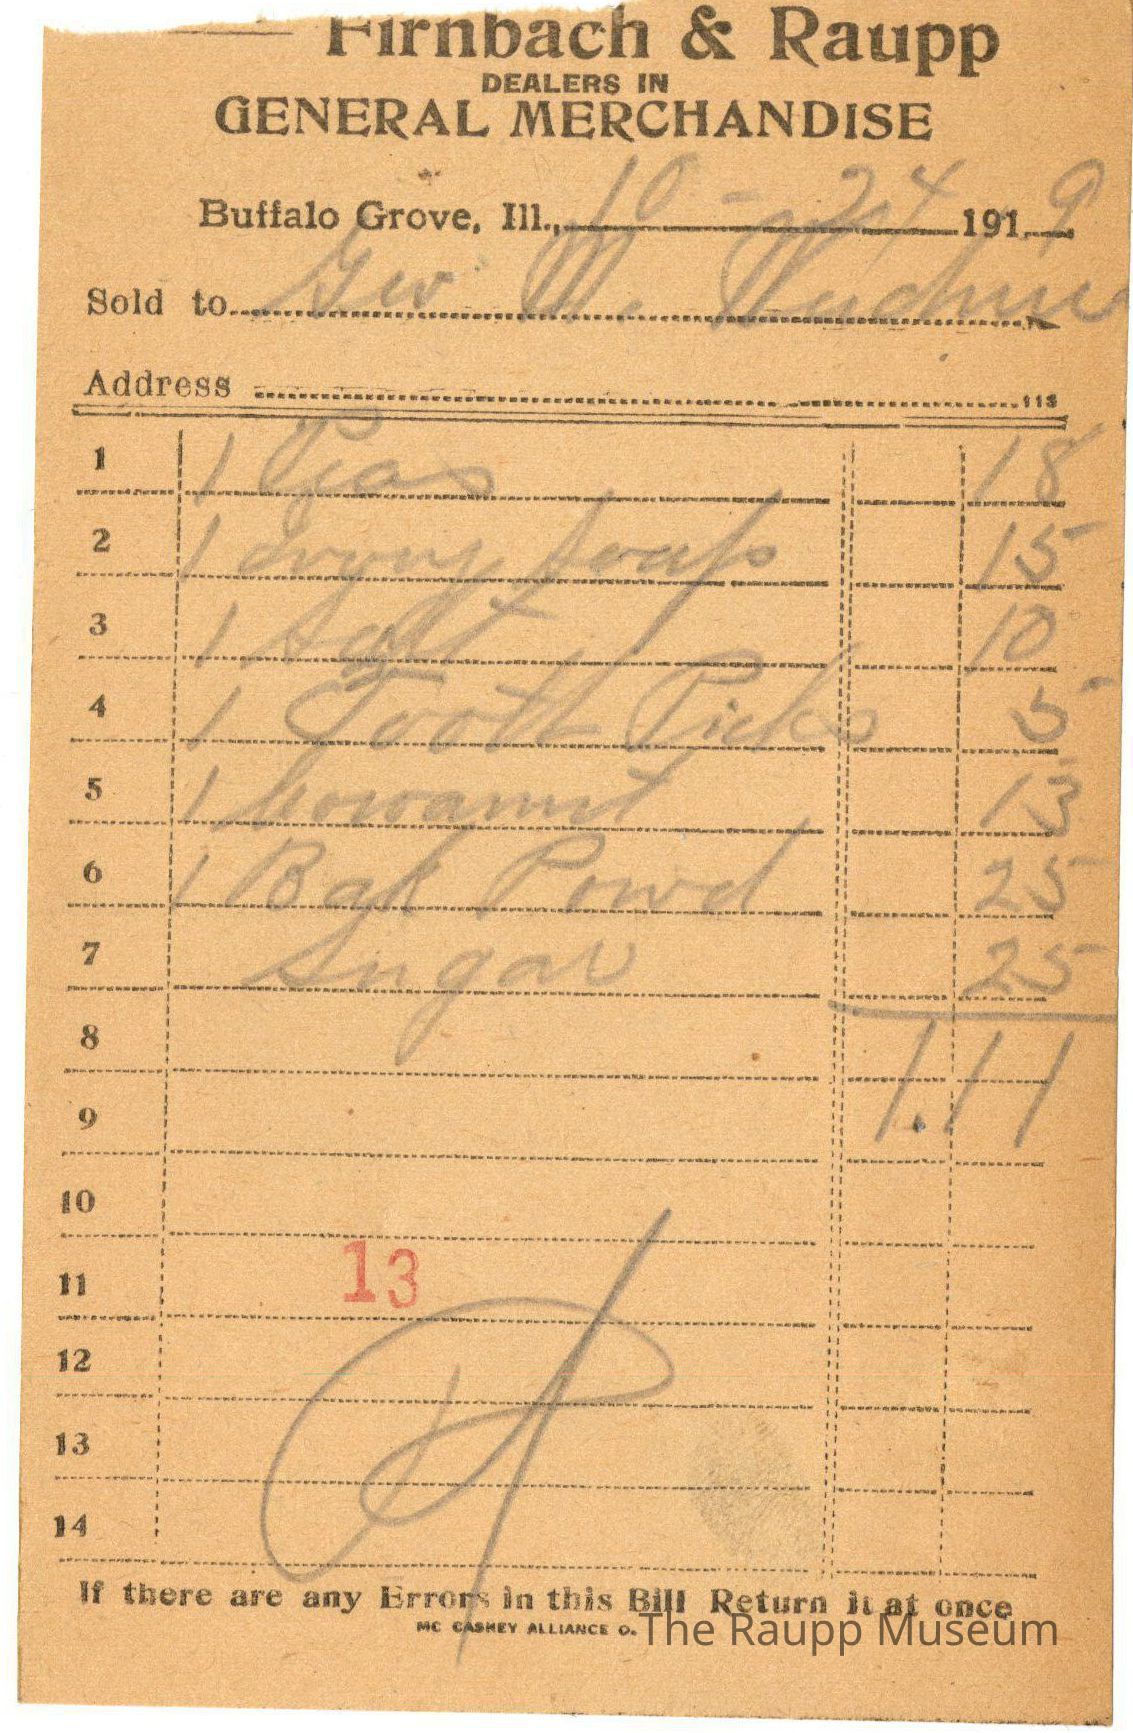 Firnbach & Raupp
DEALERS IN
GENERAL MERCHANDISE
Buffalo Grove, Ill., 10 - 24 1919
Sold to Geo M.
Address
1 1 Peas 18
2 1 Ivory Soap 15
3 1 Salt 10
4 1 Tooth Picks 5
5 1 Cocoanut 13
6 1 Bak Powd 25
7 Sugar 25
8
1.11
9
10
11 13
12
13
14
If there are any Errors in this Bill Return it at once
MC CASKEY ALLIANCE O.
The Raupp Museum